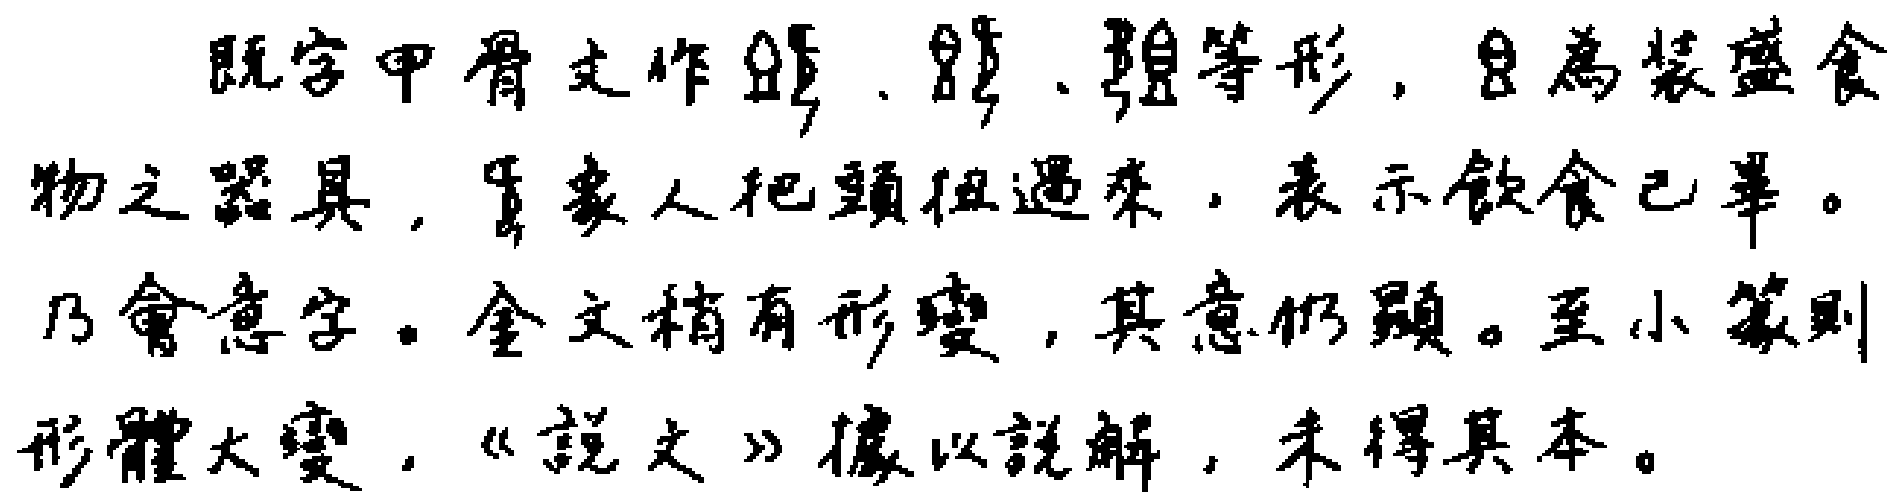 既字甲骨文作、、等形，皀為裝盛食
物之器具，旡象人把頭扭過來，表示飲食已畢。
乃會意字。金文稍有形變，其意仍顯。至小篆則
形體大變，《說文》據以說解，未得其本。